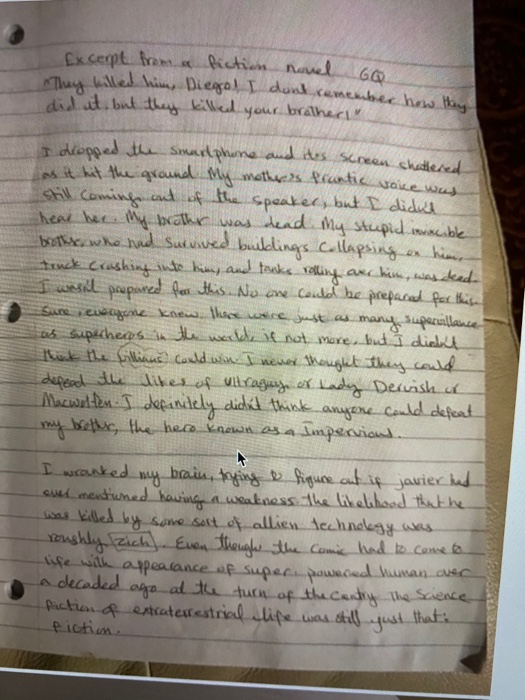 Excerpt from a fiction novel GQ
"They killed him, Diego! I dont remember how they
did it, but they killed your brother!"
I dropped the smartphone and its screen shattered
as it hit the ground. My mother's frantic voice was
still coming out of the speaker, but I didn't
hear her. My brother was dead. My stupid invincible
brother, who had survived buildings collapsing on him,
truck crashing into him, and tanks rolling over him, was dead.
I wasn't prepared for this. No one could be prepared for this.
Sure, everyone knew there were just as many supervillance
as superheros in the world, if not more, but I didn't
think the could win. I never thought they could
defead the likes of Ultraguy or Lady Dervish or
Macwolfen. I definitely didn't think anyone could defeat
my brother, the hero known as a Impervious.
I wranked my brain, trying to figure out if javier had
ever mentiumed having a weakness. The likelihood that he
was killed by some sort of allien technology was
roughly [zich]. Even though the comic had to come to
life with appearance of super. powered human over
a decaded ago at the turn of the centry. The science
faction of extraterrestrial life was still just that:
fiction.